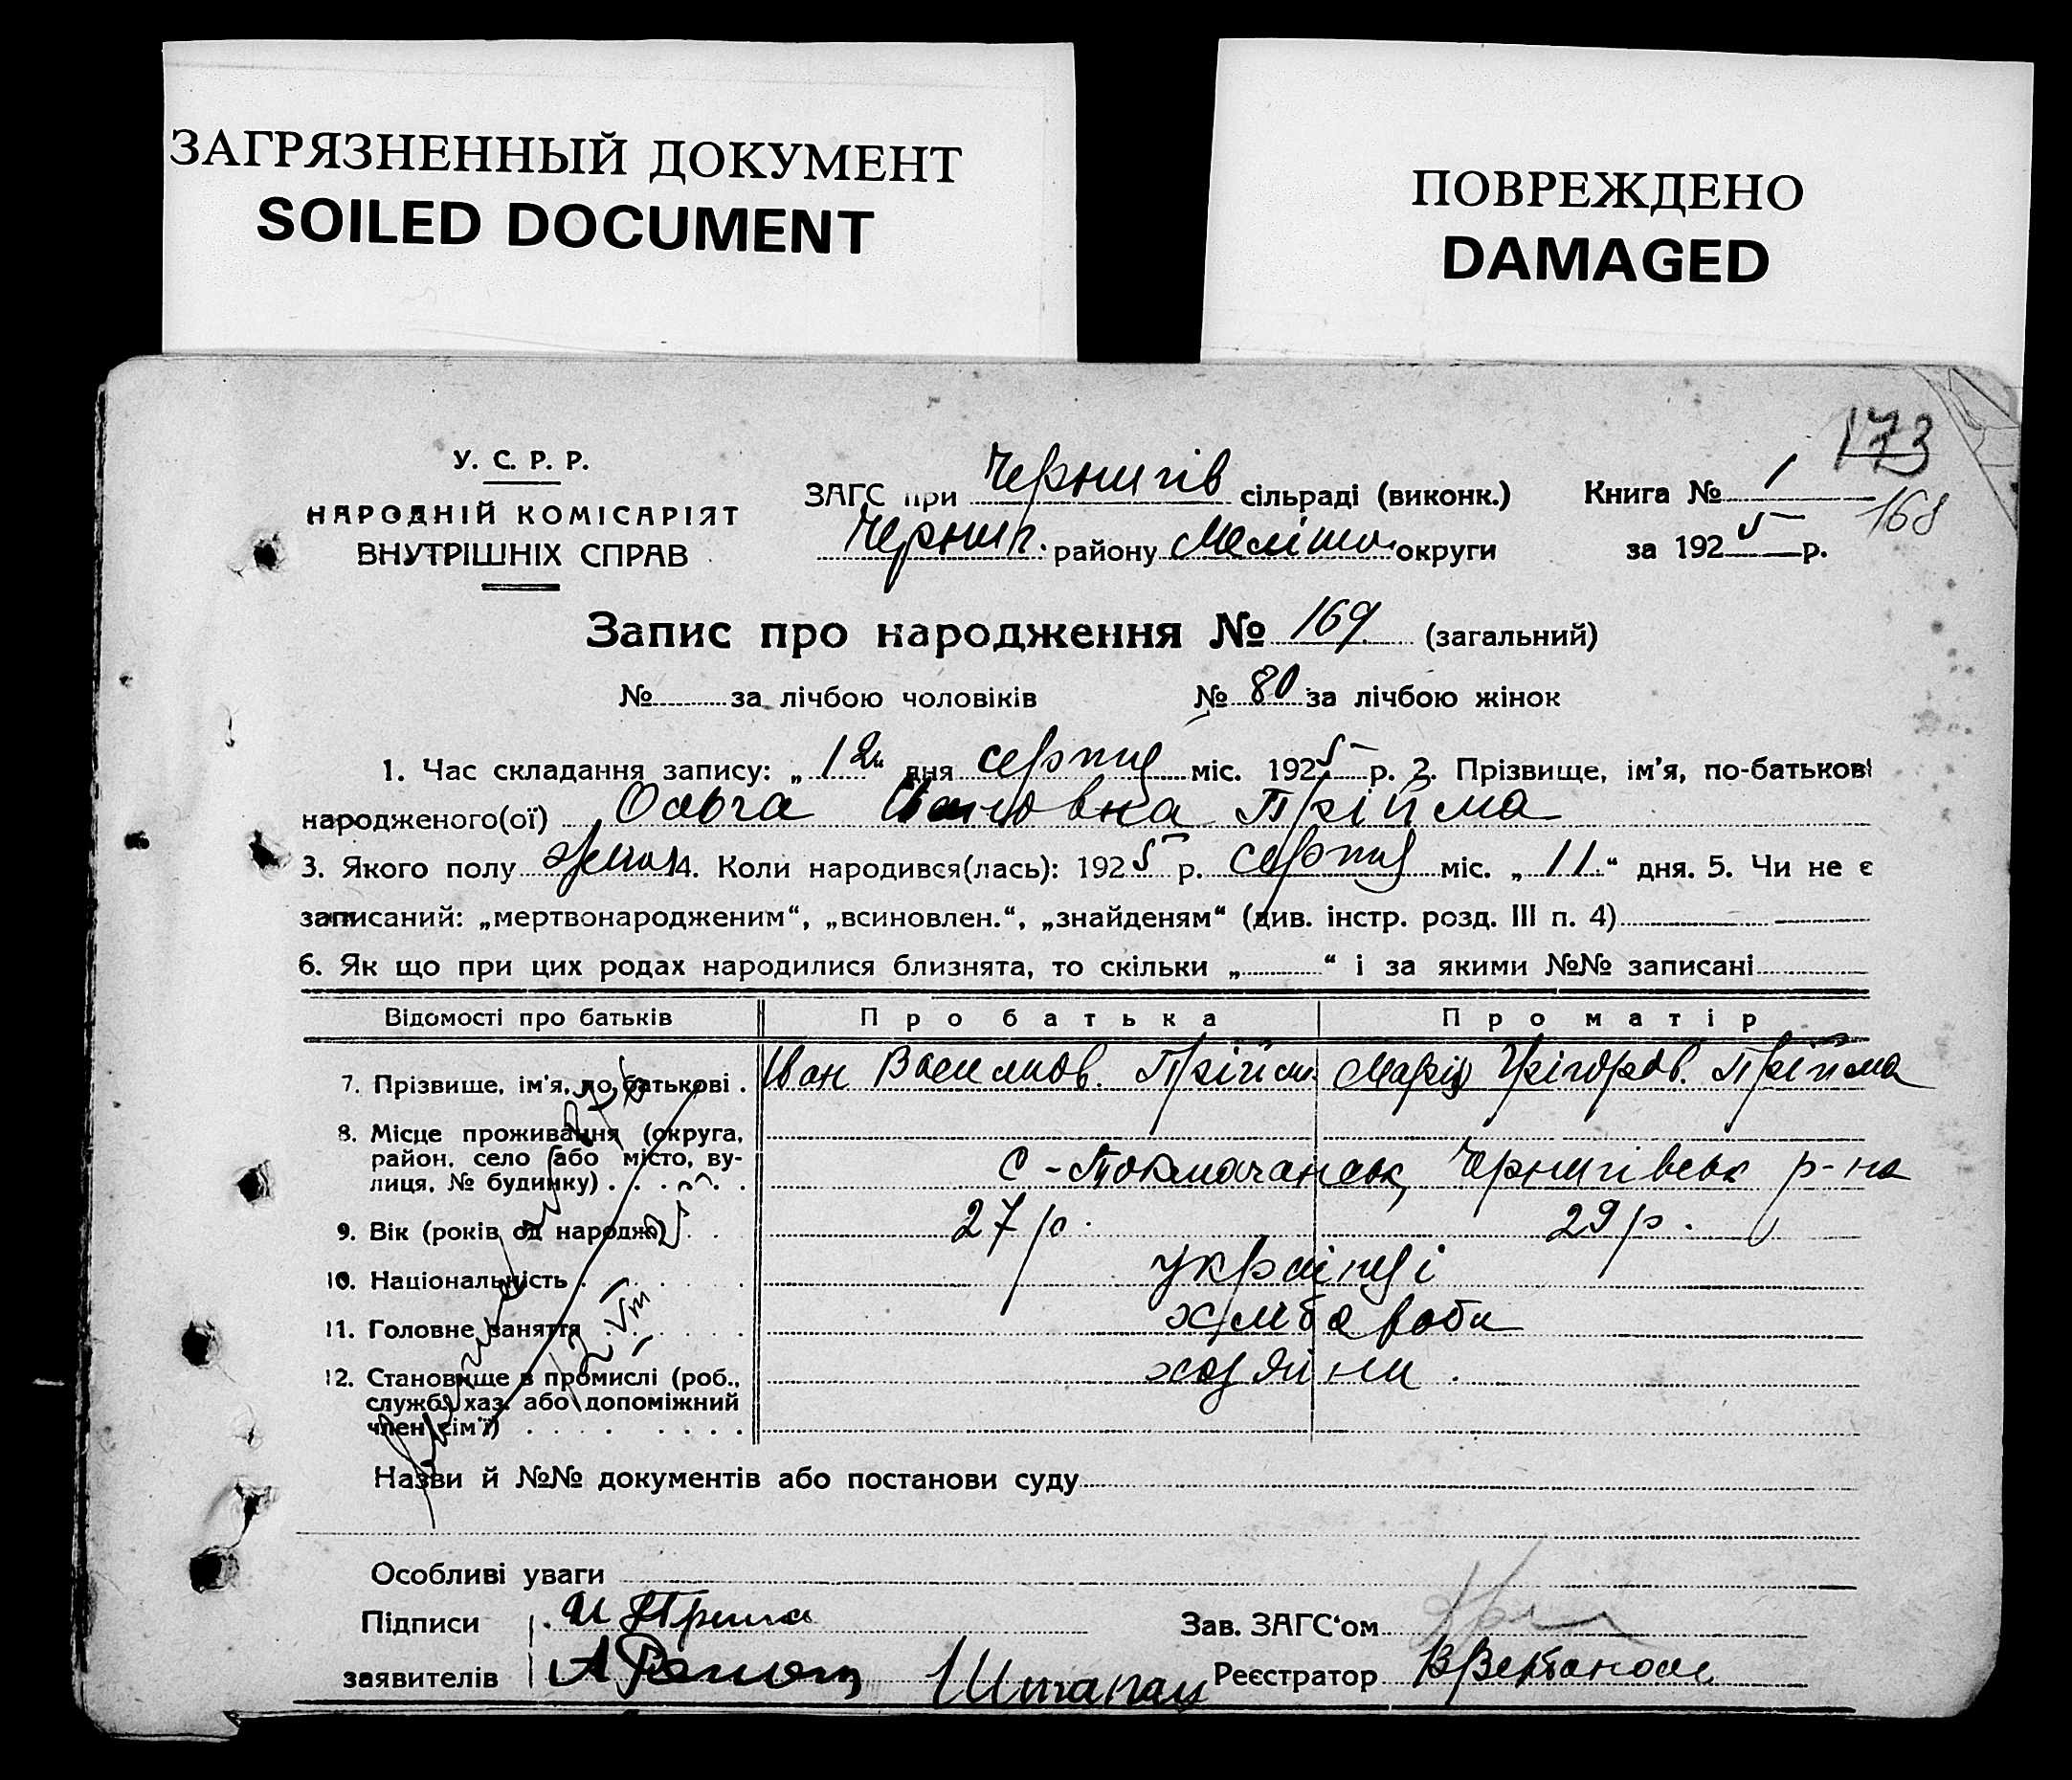 ЗАГРЯЗНЕННЫЙ ДОКУМЕНТ
SOILED DOCUMENT
ПОВРЕЖДЕНО
DAMAGED
173
168
У. С. Р. Р.
НАРОДНІЙ КОМІСАРІЯТ
ВНУТРІШНІХ СПРАВ
ЗАГС при Чернигів сільраді (виконк.)
Черниг. району Меліто. округи
Книга № 1
за 1925 р.
Запис про народження № 169 (загальний)
№ за лічбою чоловіків № 80 за лічбою жінок
1. Час складання запису: „12“ дня серпня міс. 1925 р. 2. Прізвище, ім'я, по-батькові
народженого(ої) Ольга Івановна Прійма
3. Якого полу жіноч 4. Коли народився(лась): 1925 р. серпня міс. „11“ дня. 5. Чи не є
записаний: „мертвонародженим“, „всиновлен.“, „знайденям“ (див. інстр. розд. III п. 4)
6. Як що при цих родах народилися близнята, то скільки „ “ і за якими №№ записані
Відомості про батьків Про батька Про матір
7. Прізвище, ім'я, по батькові . Іван Васильов. Прійма Марія Грігоров. Прійма
8. Місце проживання (округа,
район, село або місто, ву-
лиця, № будинку) . . . . . . с-Токмачанськ, Чернигівськ р-на
9. Вік (років од народж.) . . 27 р. 29 р.
10. Національність . . . . . українці
11. Головне заняття . . . . . хлібороби
12. Становище в промислі (роб.,
служб. хаз. або допоміжний
член сім'ї) . . . . . . . . хозяїни .
Назви й №№ документів або постанови суду
Особливі уваги
Підписи И Прийма Зав. ЗАГС'ом
заявителів А Штапац Реєстратор В Вербановс